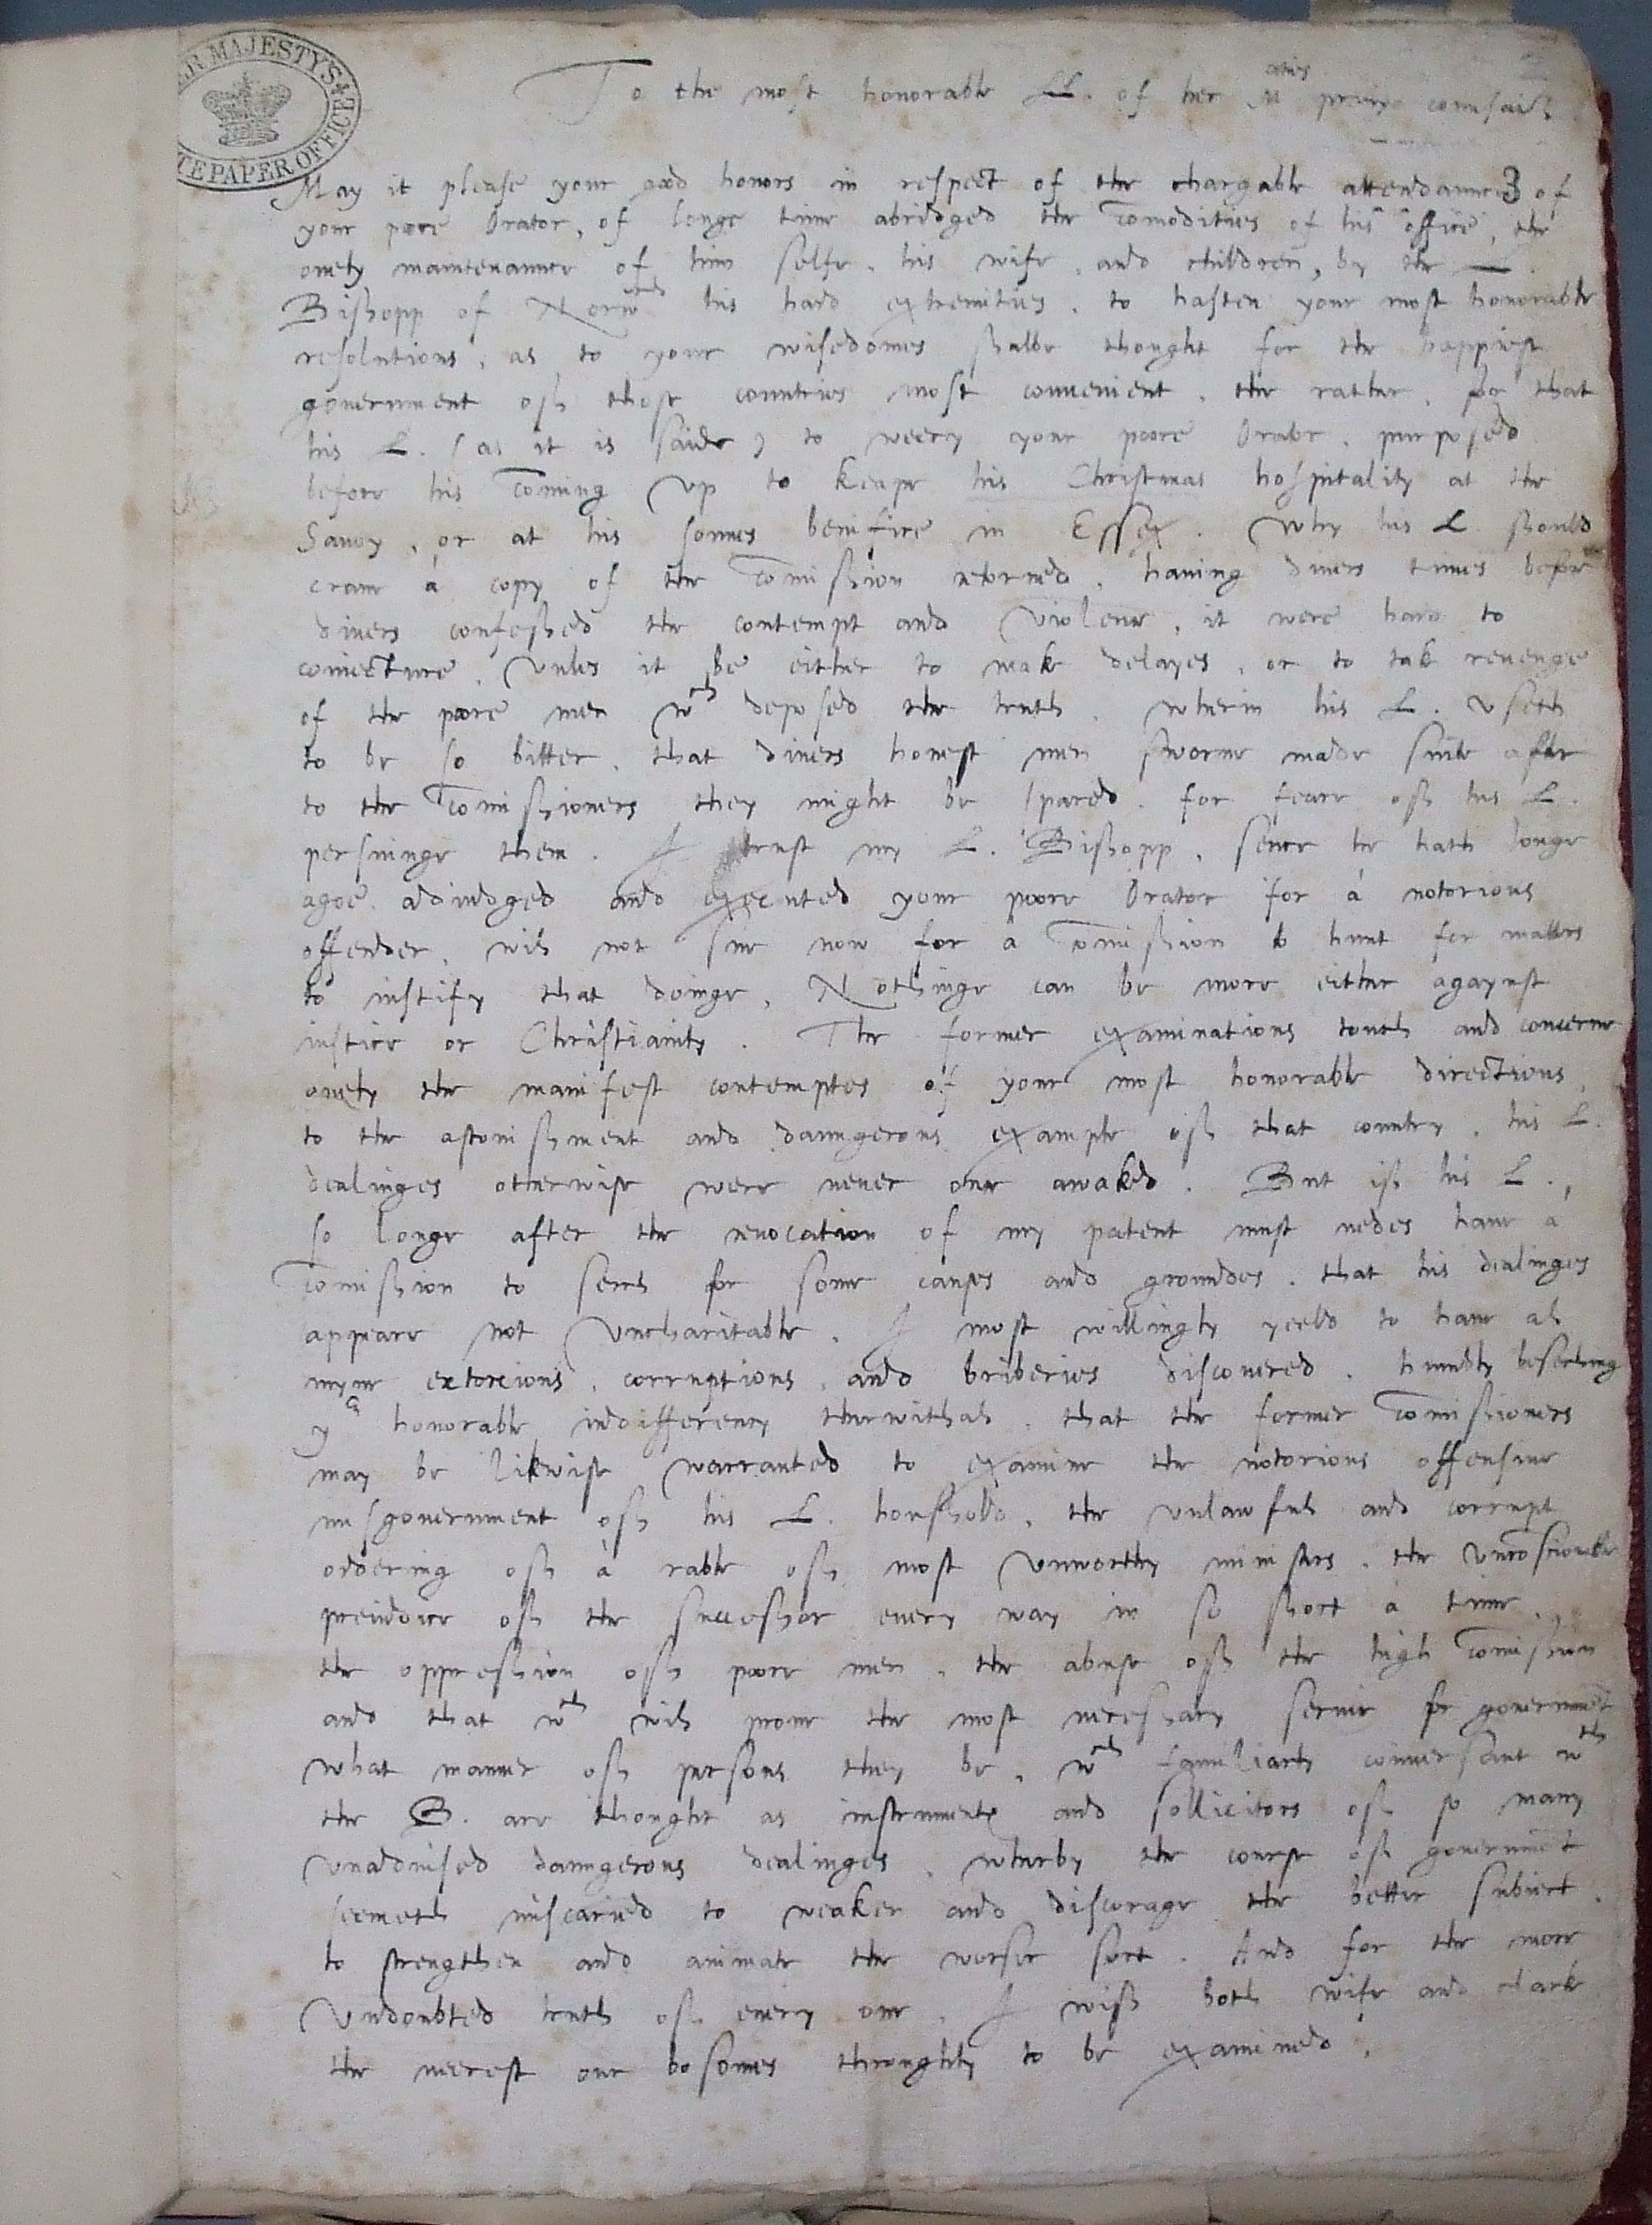 ER MAJESTYS
TE PAPER OFFICE
To the most honorable LL. of her Maties privye counsail
May it please your good honors in respect of the chargable attendaunce 3 of
your poore Orator, of longe time abridged the comodities of his office, the
onely maintenaunce of him selfe, his wife, and children, by the L
Bishopp of Norwch his hard extremities, to hasten your most honorable
resolutions, as to your wisedomes shalbe thought for the happiest
government off those countries most convenient, the rather, for that
his L. (as it is saide) to weery your poore Orator, purposed
before his coming up to keape his Christmas hospitality at the
Savoy, or at his sonnes benifice in Essex. Why his L. should
crave a copy of the comission retorned, having divers times before
divers confessed the contempt and violence, it were hard to
coniecture, unles it be either to mak delayes, or to tak revenge
of the poore men wch deposed the truth, wherin his L. useth
to be so bitter, that divers honest men sworne made suite after
to the comissioners they might be spared, for feare off his L.
persuinge them. I trust my L. Bishopp, sence he hath longe
agoe adiudged and executed your poore Orator for a notorious
offender, will not sue now for a comission to hunt for matters
to iustify that doinge, Nothinge can be more either agaynst
iustice or Christianity. The former examinations touch and concerne
onely the manifest contemptes of your most honorable directions,
to the astonishment and daungerous example off that country, his L.
dealinges otherwise were never once awaked. But iff his L.,
so longe after the revocation of my patent must nedes have a
comission to serch for some causes and groundes, that his dealinges
appeare not uncharitable, I most willingly yeeld to have all
myne extorcions, corruptions, and briberies discovered, humbly beseching
yr honorable indifferency therwithall, that the former comissioners
may be likwise warranted to examine the notorious offensive
misgovernment off his L. houshold, the unlawfull and corrupt
ordering off a rable off most unworthy ministers, the unconscionable
preiudice off the successor every way in so short a time,
the oppression off poore men, the abuse off the high comission
and that wch will prove the most necessary service for government
what manner off persons they be, wch familiarly conversant wth
the B. are thought as instruments and sollicitors off so many
unadvised daungerous dealinges, wherby the course off government
seemeth miscaried to weaken and discorage the better subiect,
to strengthen and animate the worser sort. And for the more
undoubted truth off every one, I wish both wife and clark
the neerest one bosomes throughly to be examined.